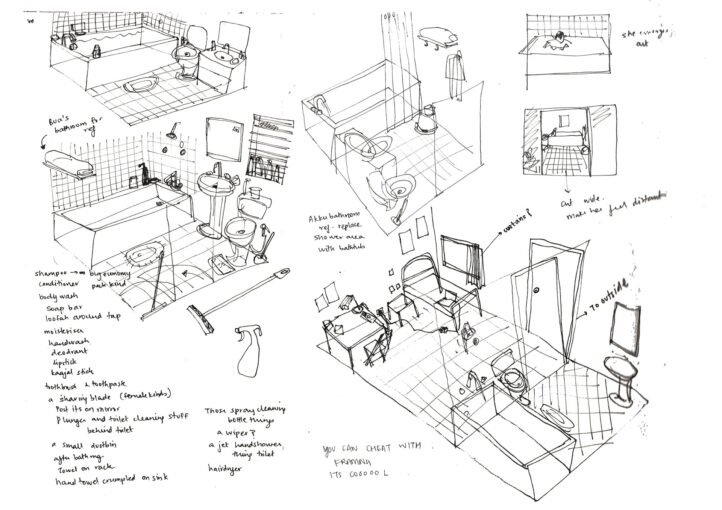 Bua's
bathroom for
ref
shampoo → big economy
conditioner pack kind
body wash
soap bar
loofah around tap
moisteriser
handwash
deodrant
lipstick
kaajal stick
toothbrush & toothpaste
a shaving blade (female kinds)
Post its on mirror
Plunger and toilet cleaning stuff
behind toilet
a small dustbin
after bathing
Towel on rack
hand towel crumpled on sink
Those spray cleaning
bottle things
a wiper?
a jet handshower
thing toilet
hairdryer
Akku bathroom
ref - replace
shower area
with bathtub
she emerges
out
cut wide.
makes her feel distant
curtains?
To outside
YOU CAN CHEAT WITH
FRAMING
ITS COOOOOL